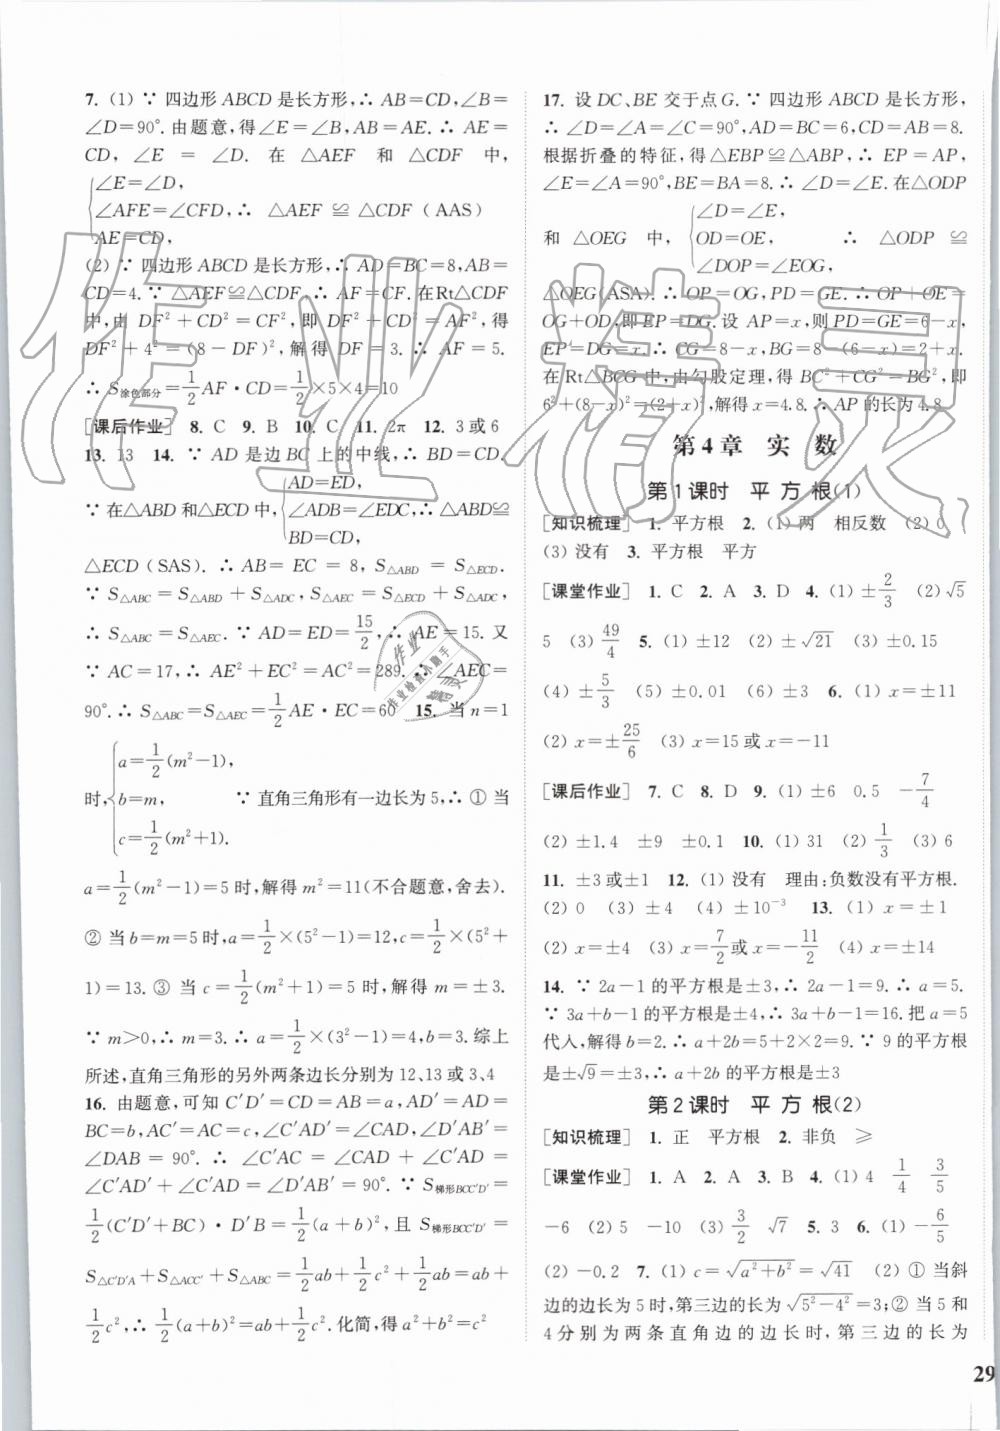 7. (1) ∵ 四边形 ABCD 是长方形,∴ AB=CD,∠B=
∠D=90°. 由题意,得∠E=∠B,AB=AE. ∴ AE=
CD, ∠E = ∠D. 在 △AEF 和 △CDF 中,
∠E=∠D,
∠AFE=∠CFD,∴ △AEF ≌ △CDF (AAS)
AE=CD,
(2) ∵ 四边形 ABCD 是长方形,∴ AD=BC=8,AB=
CD=4. ∵ △AEF≌△CDF,∴ AF=CF. 在Rt△CDF
中,由 DF²+CD²=CF²,即 DF²+CD²=AF²,得
DF²+4²=(8-DF)²,解得 DF=3. ∴ AF=5.
∴ S涂色部分=1/2 AF·CD=1/2×5×4=10
[课后作业] 8. C 9. B 10. C 11. 2π 12. 3或6
13. 13 14. ∵ AD 是边BC 上的中线,∴ BD=CD.
AD=ED,
∵ 在△ABD 和△ECD 中, ∠ADB=∠EDC,∴ △ABD≌
BD=CD,
△ECD (SAS). ∴ AB = EC = 8, S△ABD = S△ECD.
∵ S△ABC=S△ABD+S△ADC,S△AEC=S△ECD+S△ADC,
∴ S△ABC=S△AEC. ∵ AD=ED=15/2,∴ AE=15. 又
∵ AC=17,∴ AE²+EC²=AC²=289. ∴ ∠AEC=
90°. ∴ S△ABC=S△AEC=1/2 AE·EC=60 15. 当n=1
a=1/2(m²-1),
时, b=m, ∵ 直角三角形有一边长为5,∴ ① 当
c=1/2(m²+1).
a=1/2(m²-1)=5时,解得m²=11(不合题意,舍去).
② 当b=m=5时,a=1/2×(5²-1)=12,c=1/2(5²+
1)=13. ③ 当c=1/2(m²+1)=5 时,解得 m=±3.
∵ m>0,∴ m=3. ∴ a=1/2×(3²-1)=4,b=3. 综上
所述,直角三角形的另外两条边长分别为12、13或3、4
16. 由题意,可知 C′D′=CD=AB=a,AD′=AD=
BC=b,AC′=AC=c,∠C′AD′=∠CAD,∠D′AB′=
∠DAB = 90°. ∴ ∠C′AC = ∠CAD + ∠C′AD =
∠C′AD′+∠C′AD=∠D′AB′=90°. ∵ S梯形BCC′D′=
1/2(C′D′+BC)·D′B=1/2(a+b)²,且 S梯形BCC′D′=
S△C′D′A+S△ACC′+S△ABC=1/2ab+1/2c²+1/2ab=ab+
1/2c²,∴ 1/2(a+b)²=ab+1/2c². 化简,得a²+b²=c²
17. 设 DC、BE 交于点G. ∵ 四边形 ABCD 是长方形,
∴ ∠D=∠A=∠C=90°,AD=BC=6,CD=AB=8.
根据折叠的特征,得△EBP≌△ABP,∴ EP=AP,
∠E=∠A=90°,BE=BA=8. ∴ ∠D=∠E. 在△ODP
∠D=∠E,
和 △OEG 中, OD=OE, ∴ △ODP ≌
∠DOP=∠EOG,
△OEG(ASA). ∴ OP=OG,PD=GE. ∴ OP+OE=
OG+OD,即EP=DG. 设 AP=x,则PD=GE=6-x,
EP=DG=x. ∴ CG=8-x,BG=8-(6-x)=2+x.
在Rt△BCG 中,由勾股定理,得 BC²+CG²=BG²,即
6²+(8-x)²=(2+x)²,解得x=4.8. ∴ AP 的长为4.8
第4章 实 数
第1课时 平 方 根(1)
[知识梳理] 1. 平方根 2. (1) 两 相反数 (2) 0
(3) 没有 3. 平方根 平方
[课堂作业] 1. C 2. A 3. D 4. (1) ±2/3 (2) √5
5 (3) 49/4 5. (1) ±12 (2) ±√21 (3) ±0.15
(4) ±5/3 (5) ±0.01 (6) ±5 6. (1) x=±11
(2) x=±25/6 (3) x=15或x=-11
[课后作业] 7. C 8. D 9. (1) ±6 0.5 -7/4
(2) ±1.4 ±9 ±0.1 10. (1) 31 (2) 1/3 (3) 6
11. ±3或±1 12. (1) 没有 理由:负数没有平方根.
(2) 0 (3) ±4 (4) ±10⁻³ 13. (1) x=±1
(2) x=±4 (3) x=7/2或x=-11/2 (4) x=±14
14. ∵ 2a-1的平方根是±3,∴ 2a-1=9. ∴ a=5.
∵ 3a+b-1的平方根是±4,∴ 3a+b-1=16. 把a=5
代入,解得b=2. ∴ a+2b=5+2×2=9. ∵ 9的平方根
是±√9=±3,∴ a+2b的平方根是±3
第2课时 平 方 根(2)
[知识梳理] 1. 正 平方根 2. 非负 ≥
[课堂作业] 1. A 2. A 3. B 4. (1) 4 1/4 3/5
-6 (2) 5 -10 (3) 3/2 √7 5. 3 6. (1) -6/5
(2) -0.2 7. (1) c=√a²+b²=√41 (2) ① 当斜
边的边长为5时,第三边的长为√5²-4²=3;② 当5和
4分别为两条直角边的边长时,第三边的长为
29
作业精灵
作业
作业检查小助手
精灵